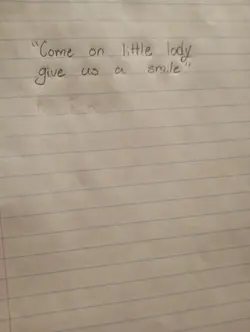 "Come on little lady
give us a smile"